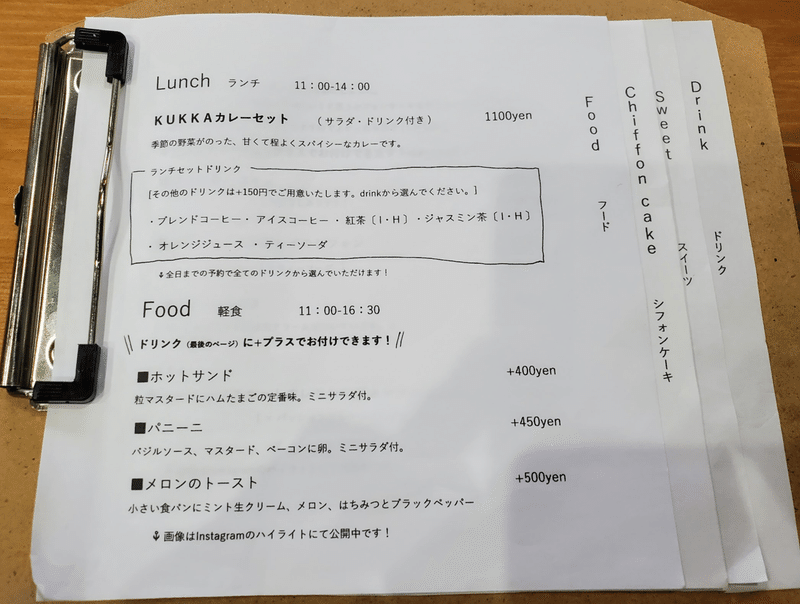 Lunch ランチ 11：00-14：00
KUKKAカレーセット （サラダ・ドリンク付き） 1100yen
季節の野菜がのった、甘くて程よくスパイシーなカレーです。
ランチセットドリンク
[その他のドリンクは+150円でご用意いたします。drinkから選んでください。]
・ブレンドコーヒー・ アイスコーヒー ・ 紅茶〔 I・H 〕・ジャスミン茶〔 I・H 〕
・ オレンジジュース ・ ティーソーダ
↓全日までの予約で全てのドリンクから選んでいただけます！
Food 軽食 11：00-16：30
\\ ドリンク（最後のページ）に+プラスでお付けできます！ //
■ホットサンド +400yen
粒マスタードにハムたまごの定番味。ミニサラダ付。
■パニーニ +450yen
バジルソース、マスタード、ベーコンに卵。ミニサラダ付。
■メロンのトースト +500yen
小さい食パンにミント生クリーム、メロン、はちみつとブラックペッパー
↓画像はInstagramのハイライトにて公開中です！
Food フード
Chiffon cake シフォンケーキ
Sweet スイーツ
Drink ドリンク